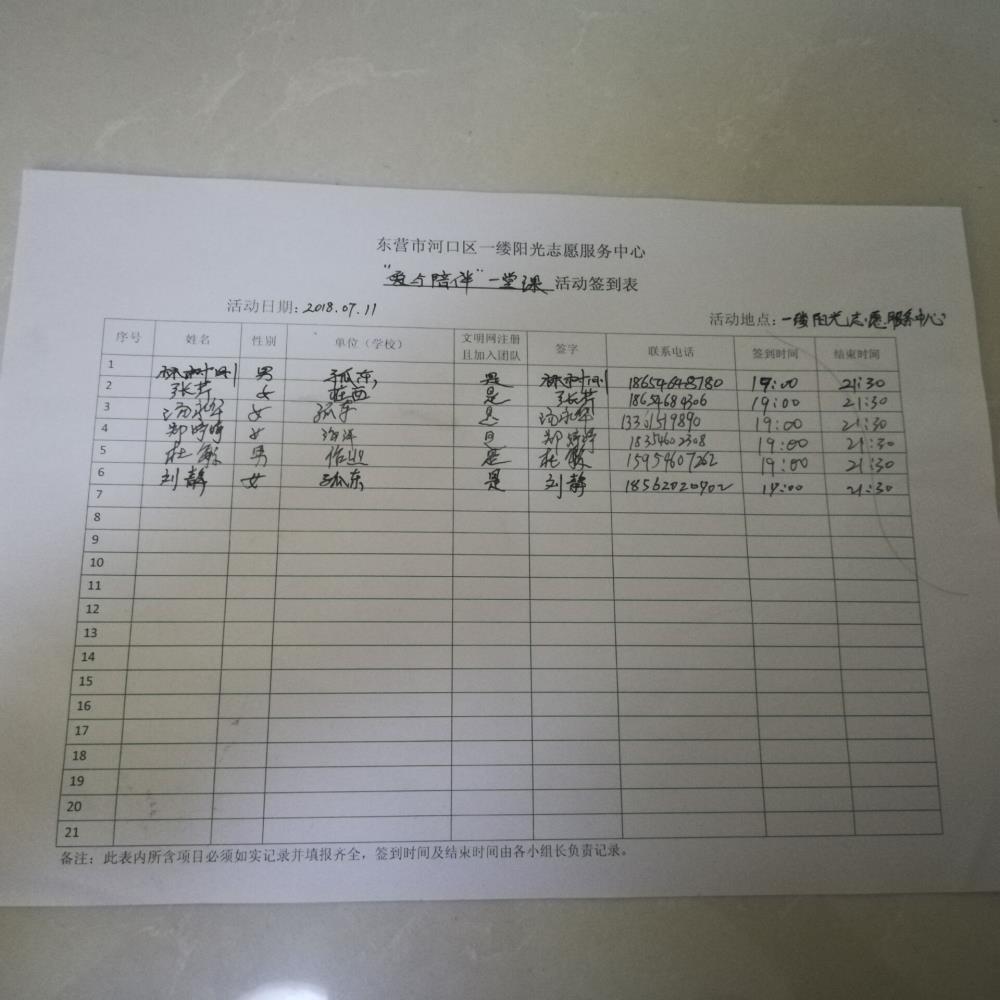 东营市河口区一缕阳光志愿服务中心
"爱与陪伴"一堂课 活动签到表
活动日期：2018.07.11 活动地点：一缕阳光志愿服务中心
序号 姓名 性别 单位（学校） 文明网注册且加入团队 签字 联系电话 签到时间 结束时间
1 男 孤东 是 18654648780 19:00 21:30
2 张芹 女 是 张芹 18654684306 19:00 21:30
3 汤永华 女 孤东 是 汤永华 19:00 21:30
4 郑婷婷 女 海洋 郑婷婷 18354602308 19:00 21:30
5 杜敏 男 作业 是 杜敏 15954607262 19:00 21:30
6 刘静 女 孤东 是 刘静 18562020902 19:00 21:30
7
8
9
10
11
12
13
14
15
16
17
18
19
20
21
备注：此表内所含项目必须如实记录并填报齐全，签到时间及结束时间由各小组长负责记录。